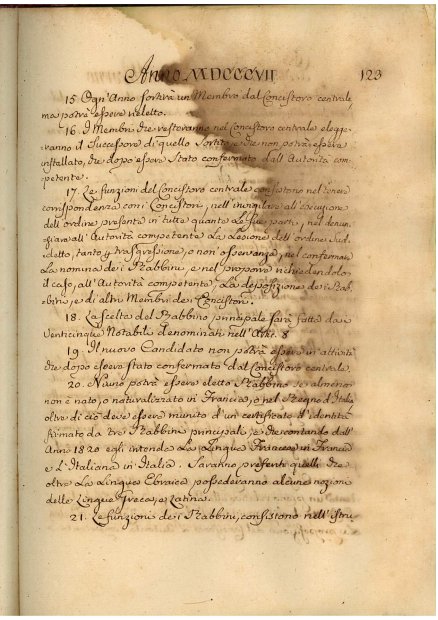 Anno MDCCCVII 123
15. Ogn'Anno sortirà un Membro dal Concistoro centrale,
ma potrà essere rieletto.
16. I Membri che resteranno nel Concistoro centrale elegge-
ranno il Successore di quello Sortito, che non potrà essere
installato, che dopo essere Stato confermato dall'Autorità com-
petente.
17. Le funzioni del Concistoro centrale consistono nel tener
corrispondenza con i Concistori, nell'invigilare all'esecuzione
dell'ordine presente in tutte quante Le sue parti, nel denun-
ziare all'Autorità competente La Lesione dell'ordine Sud-
detto, tanto p trasgressione, o non osservanza, nel confermare
La nomina dei Rabbini, e nel proporre richiedendolo
il caso, all'Autorità competente, La deposizione dei Rab-
bini, e di altri Membri dei Concistori.
18. La scelta del Rabbino principale sarà fatta dai
Venticinque Notabili denominati nell'Art. 8
19. Il nuovo Candidato non potrà essere in attività
che dopo essere stato confermato dal Concistoro centrale
20. Niuno potrà essere eletto Rabbino se almeno
non è nato, o naturalizzato in Francia, o nel Regno d'Italia
oltre di ciò deve essere munito d'un certificato d'identità
firmato da tre Rabbini principali, e che contando dall'
Anno 1820 egli intenda La Lingua Francese in Francia
e L'Italiana in Italia. Saranno preferiti quelli che
oltre La Lingua Ebraica possederanno alcune nozioni
delle Lingue Greca, e Latina.
21. Le funzioni dei Rabbini, consistono nell'istru-